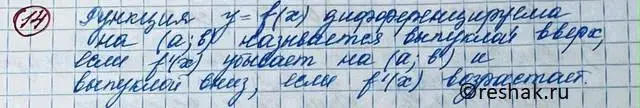 14 Функция y = f(x) дифференцируема
на (a; b) называется выпуклой вверх,
если f'(x) убывает на (a; b) и
выпуклой вниз, если f'(x) возрастает.
reshak.ru